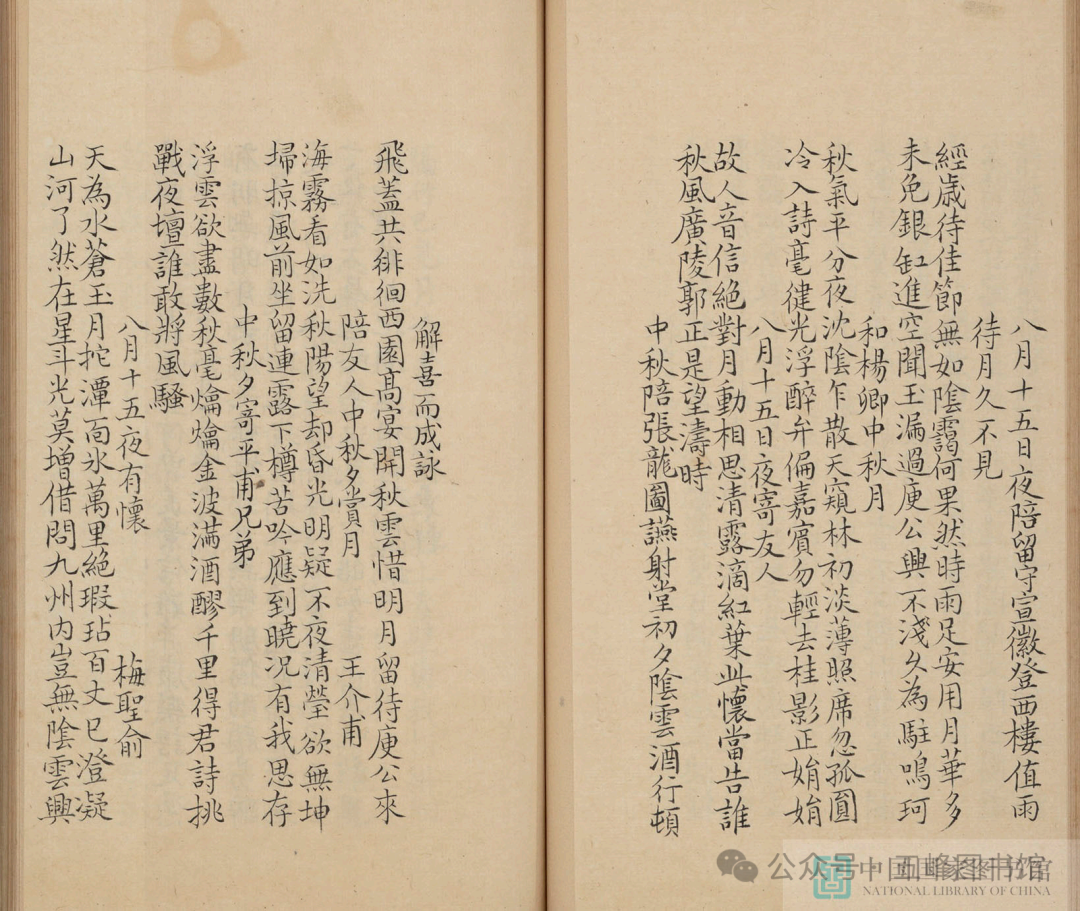 八月十五日夜陪留守宣徽登西樓值雨
待月久不見
經歲待佳節無如陰靄何果然時雨足安用月華多
未免銀缸進空聞玉漏過庾公興不淺久為駐鳴珂
和楊卿中秋月
秋氣平分夜沈陰乍散天窺林初淡薄照席忽孤圓
冷入詩毫健光浮醉弁偏嘉賓勿輕去桂影正娟娟
八月十五日夜寄友人
故人音信絕對月動相思清露滴紅葉此懷當告誰
秋風廣陵郭正是望濤時
中秋陪張龍圖讌射堂初夕陰雲酒行頓
解喜而成詠
飛蓋共徘徊西園高宴開秋雲惜明月留待庾公來
陪友人中秋夕賞月 王介甫
海霧看如洗秋陽望却昏光明疑不夜清瑩欲無坤
掃掠風前坐留連露下樽苦吟應到曉况有我思存
中秋夕寄平甫兄弟
浮雲欲盡數秋毫爚爚金波滿酒醪千里得君詩挑
戰夜壇誰敢將風騷
八月十五夜有懷 梅聖俞
天為水蒼玉月挓潭面氷萬里絕瑕玷百丈巳澄凝
山河了然在星斗光莫增借問九州內豈無陰雲興
公众号·五峰图书馆
中国国家图书馆
NATIONAL LIBRARY OF CHINA